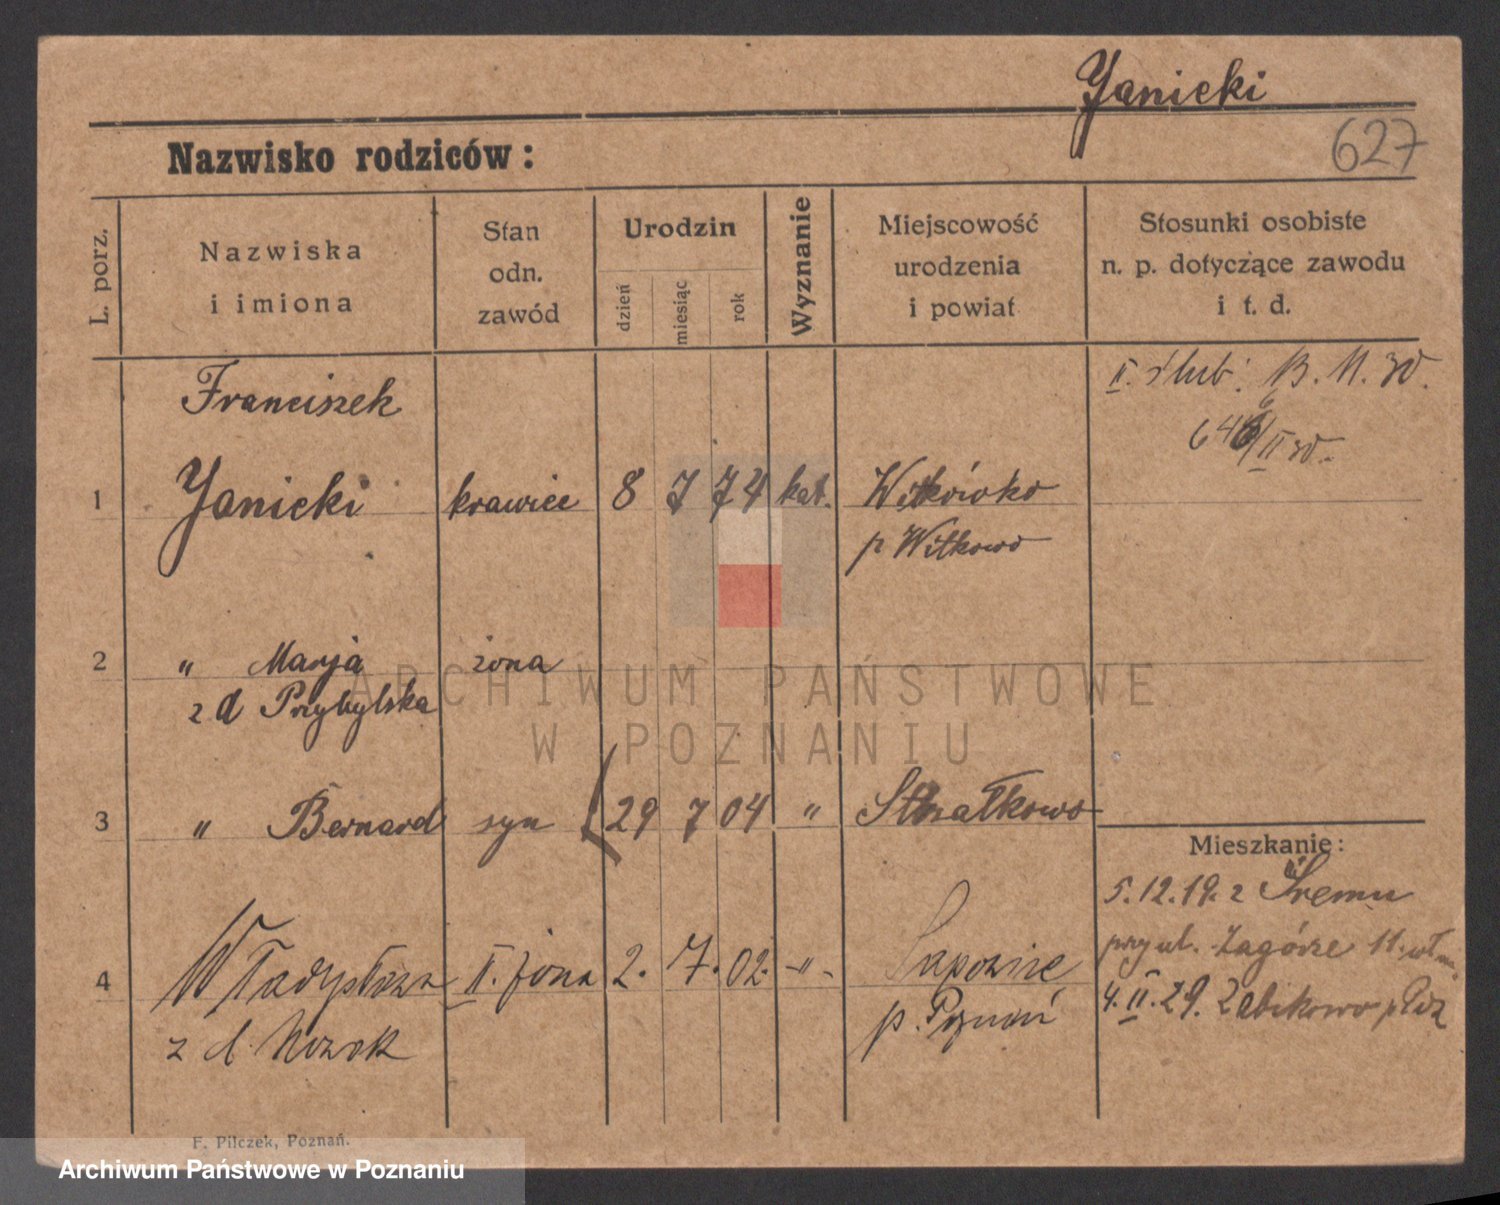 Janicki
627
Nazwisko rodziców:
L. porz.
Nazwiska
i imiona
Stan
odn.
zawód
Urodzin
dzień
miesiąc
rok
Wyznanie
Miejscowość
urodzenia
i powiat
Stosunki osobiste
n. p. dotyczące zawodu
i t. d.
II. ślub: B. M. 30.
Franciszek
1 Janicki krawiec 8 7 74 kat. Witkówko
p Witkowo
2 " Marja żona
z d Przybylska
3 " Bernard syn 29 7 04 " Strzałkowo
Mieszkanie:
5.12.19. z Śremu
przy ul. Zagórze 11.
4 Władysława II. żona 2. 7. 02. -"-
4. II. 29. Żabikowo p
z d. Nowak
p. Poznań
F. Pilczek, Poznań.
ARCHIWUM PAŃSTWOWE
W POZNANIU
Archiwum Państwowe w Poznaniu